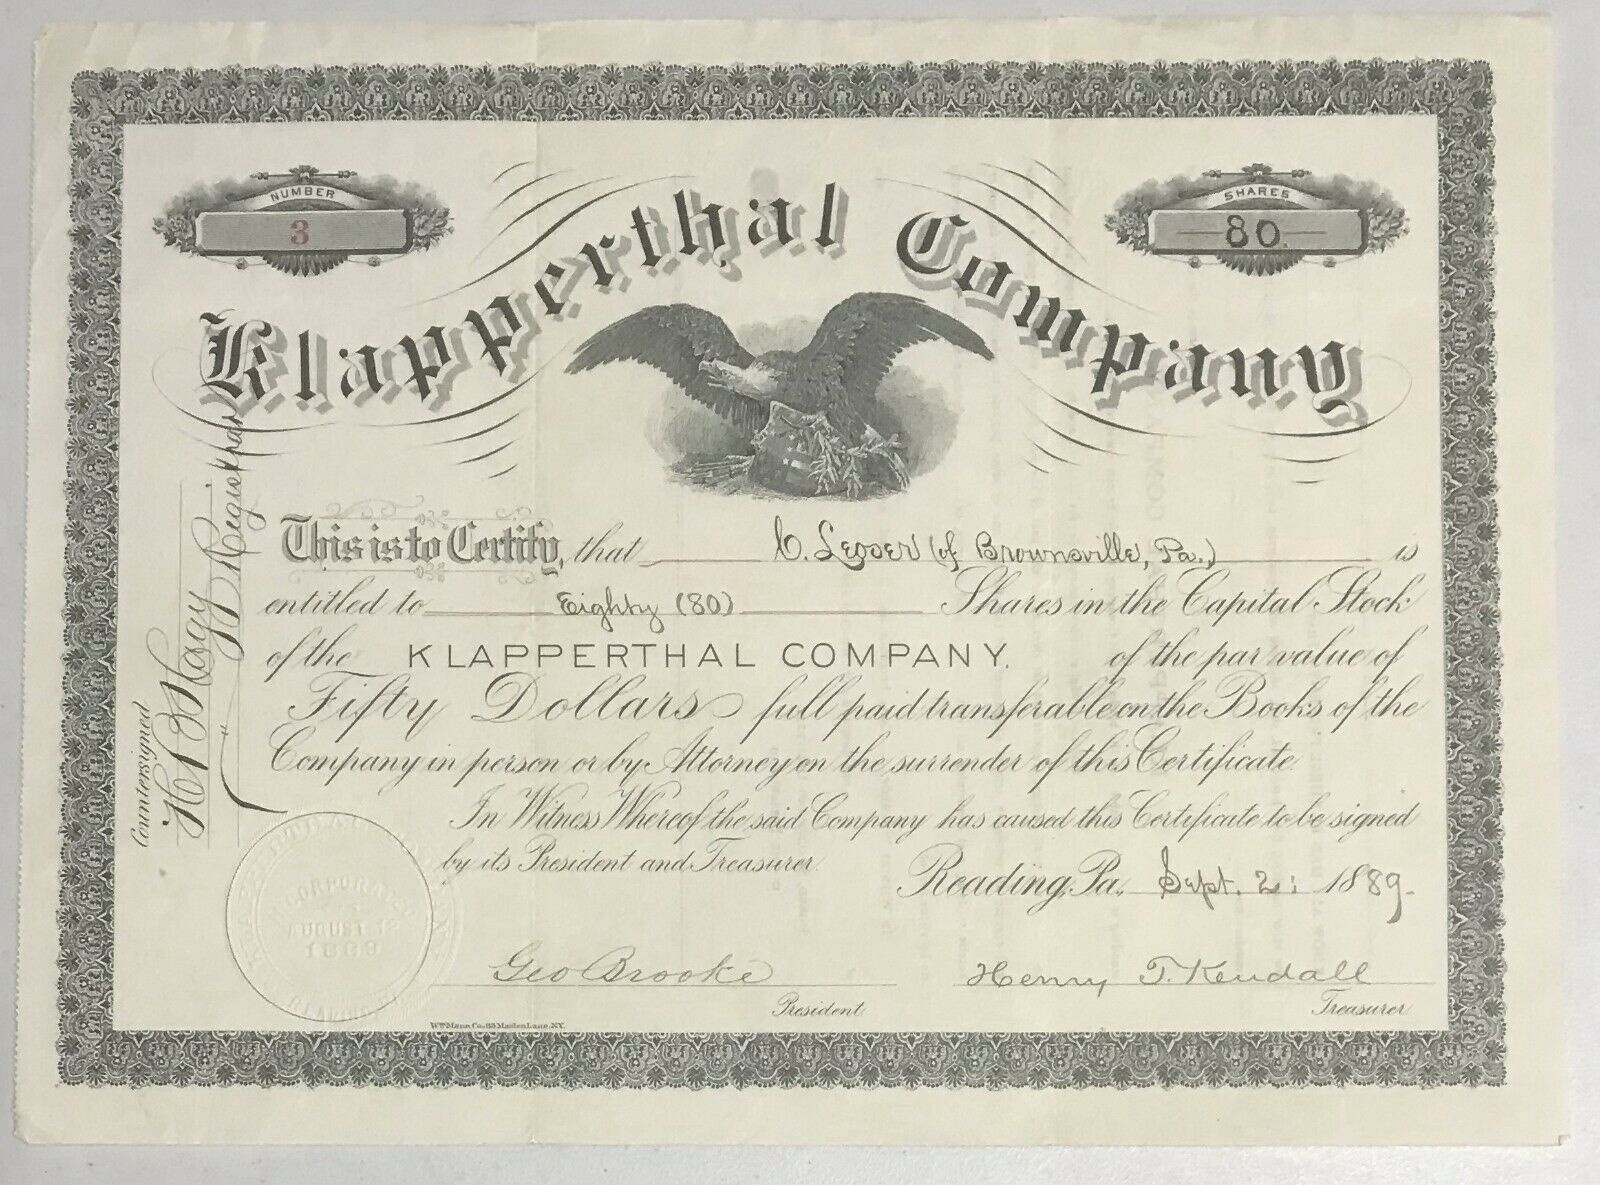 NUMBER
3
SHARES
80.
Klapperthal Company
This is to Certify, that C. Lesser (of Brownsville, Pa.) is
entitled to Eighty (80) Shares in the Capital Stock
of the KLAPPERTHAL COMPANY. of the par value of
Fifty Dollars full paid transferable on the Books of the
Company in person or by Attorney on the surrender of this Certificate.
In Witness Whereof the said Company has caused this Certificate to be signed
by its President and Treasurer.
Reading, Pa., Sept. 2: 1889.
Geo Brooke
President
Henry T. Kendall
Treasurer
Countersigned
H B Hagy Registrar
INCORPORATED
AUGUST
1889
Wm Mann Co., 83 Maiden Lane, N.Y.